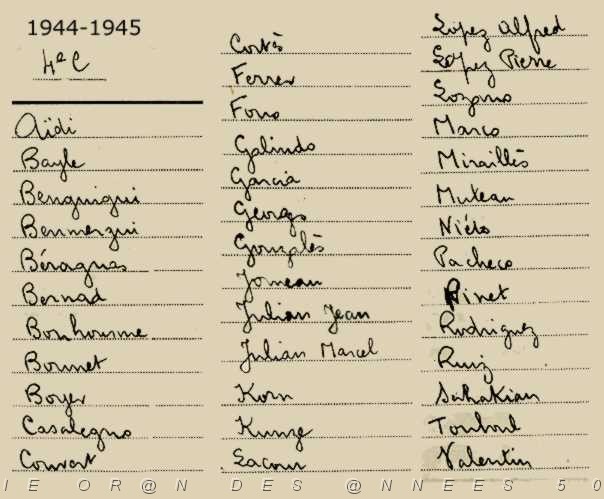 1944-1945
4e C
Aïdi
Bayle
Benguigui
Benmergui
Béragnes
Bernad
Bonhomme
Bonnet
Boyer
Casalegno
Convert
Cortès
Ferrer
Fons
Galindo
Garcia
Georges
Gonzalès
Jomeau
Julian Jean
Julian Marcel
Korn
Kunze
Lacour
López Alfred
López Pierre
Lozano
Marco
Miraillès
Muteau
Niéto
Pacheco
Pinet
Rodriguez
Ruiz
Sahakian
Touboul
Valentin
IE OR@N DES @NNEES 50